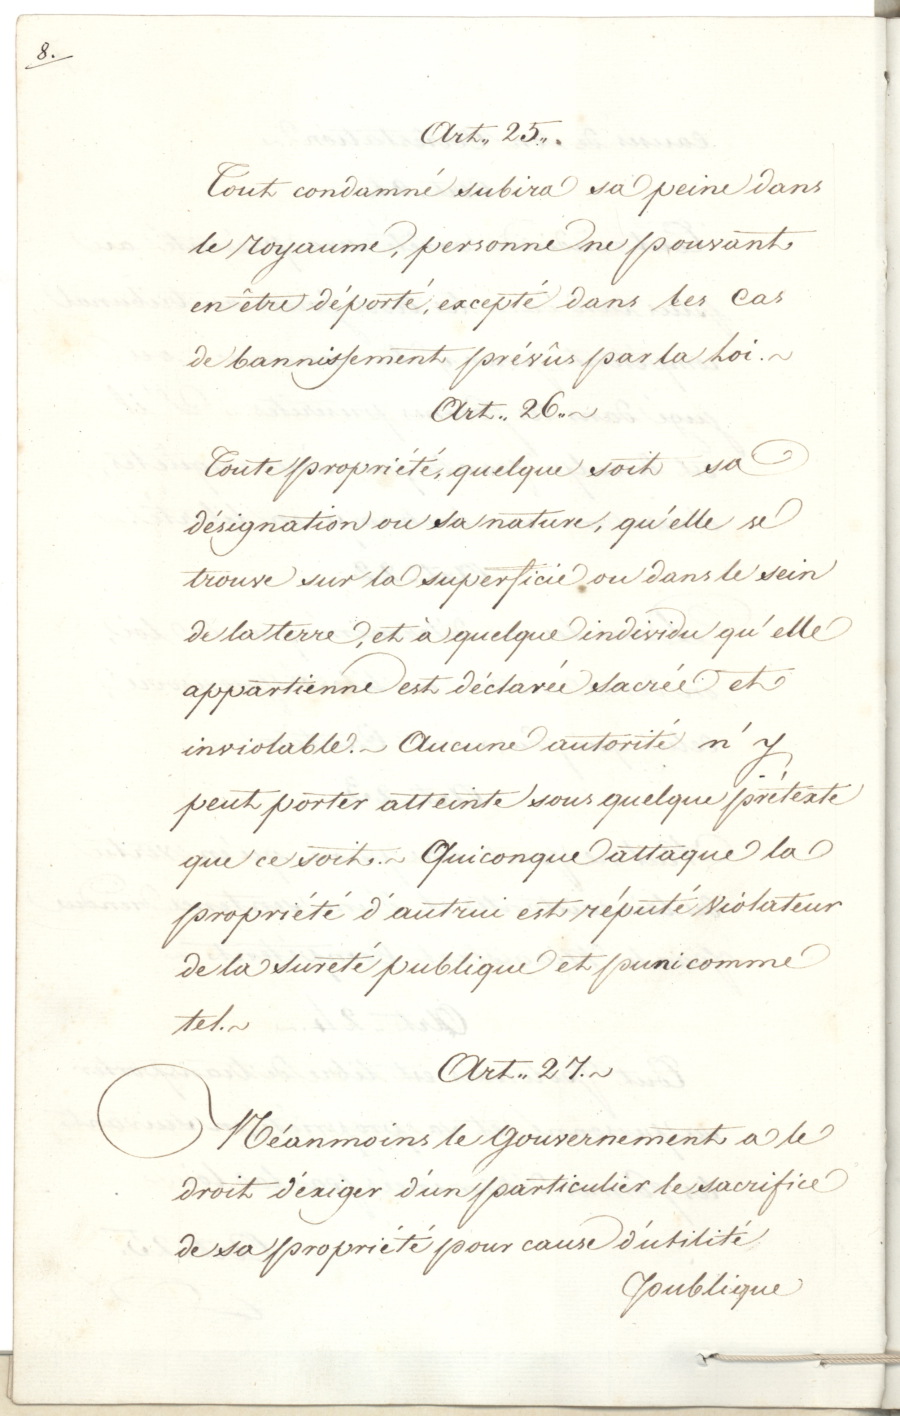 8.
Art. 25.
Tout condamné subira sa peine dans
le royaume, personne ne pouvant
en être déporté, excepté dans les cas
de bannissement prévûs par la Loi.~
Art. 26.~
Toute propriété, quelque soit sa
désignation ou sa nature, qu'elle se
trouve sur la superficie ou dans le sein
de la terre, et à quelque individu qu'elle
appartienne est déclarée sacrée et
inviolable.~ Aucune autorité n'y
peut porter atteinte sous quelque prétexte
que ce soit.~ Quiconque attaque la
propriété d'autrui est réputé violateur
de la sureté publique et puni comme
tel.~
Art. 27.~
Néanmoins le Gouvernement a le
droit d'éxiger d'un particulier le sacrifice
de sa propriété pour cause d'utilité
publique